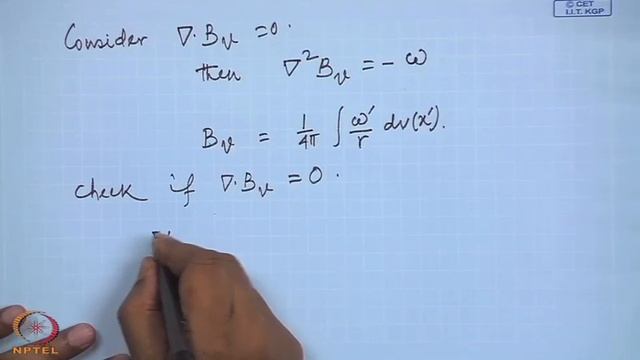 © CET
I.I.T. KGP
Consider ∇·B_v = 0.
then ∇²B_v = - ω
B_v = 1/4π ∫ ω'/r dv(x').
check if ∇·B_v = 0.
NPTEL